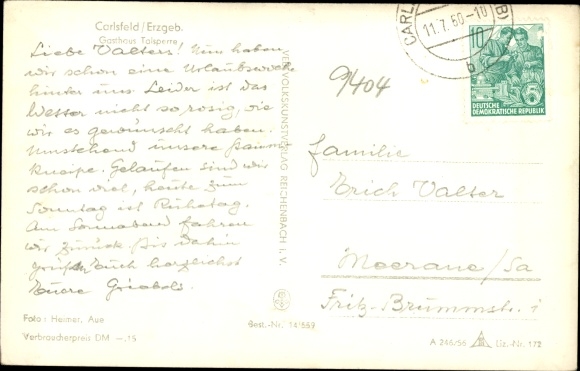 Carlsfeld/Erzgeb.
Gasthaus Talsperre
Liebe Valters! Nun haben
wir schon eine Urlaubswoche
hinter uns. Leider ist das
Wetter nicht so rosig, wie
wir es gewünscht haben.
Umstehend unsere Stamm
kneipe. Gelaufen sind wir
schon viel, heute zum
Sonntag ist Ruhetag.
Am Sonnabend fahren
wir zurück. Bis dahin
grüßen Euch herzlichst
Eure
Foto: Heimer, Aue
Verbraucherpreis DM —.15
VEB VOLKSKUNSTVERLAG REICHENBACH i. V.
Best.-Nr. 14/559
9/404
CARL
11.7.60-10
b
10
DEUTSCHE
DEMOKRATISCHE REPUBLIK
Familie
Erich Valter
Meerane/Sa
Fritz-Brummstr. 1
A 246/56 Liz.-Nr. 172